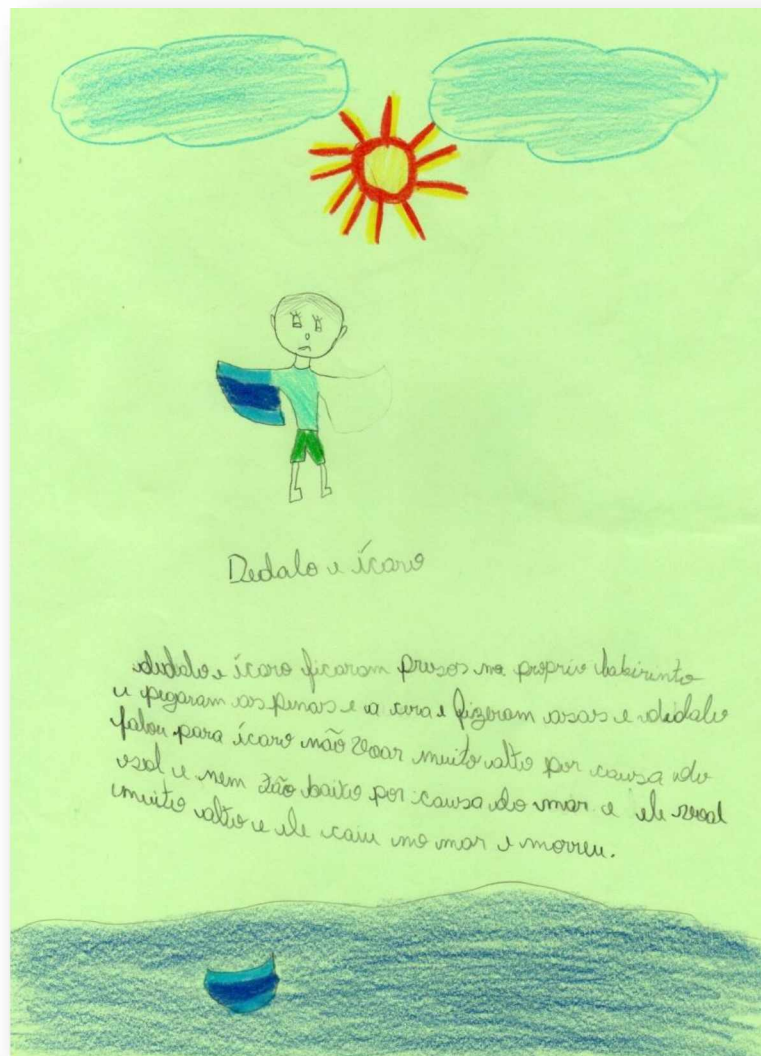 Dedalo e ícaro
dedalo e ícaro ficaram presos no proprio labirinto
e pegaram as penas e a cera e fizeram asas e dédalo
falou para ícaro não voar muito alto por causa do
sol e nem tão baixo por causa do mar e ele vooal
muito alto e ele caiu no mar e morreu.